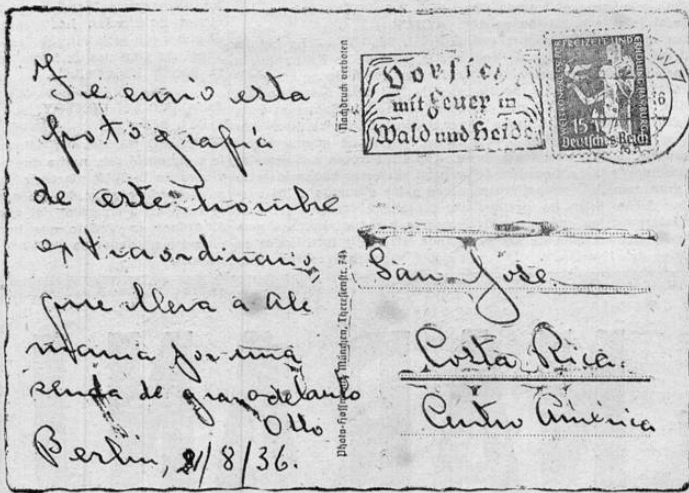 Te envio esta
fotografia
de este hombre
extraordinario,
que lleva a Ale
mania por una
senda de
Otto
Berlin, /8/36.
Nachdruck verboten
Photo-Hoffmann, München, Theresienstr. 74
Vorsicht
mit Feuer in
Wald und Heide
FREIZEIT UND
ERHOLUNG
15
Deutsches Reich
San José
Costa Rica.
Centro América